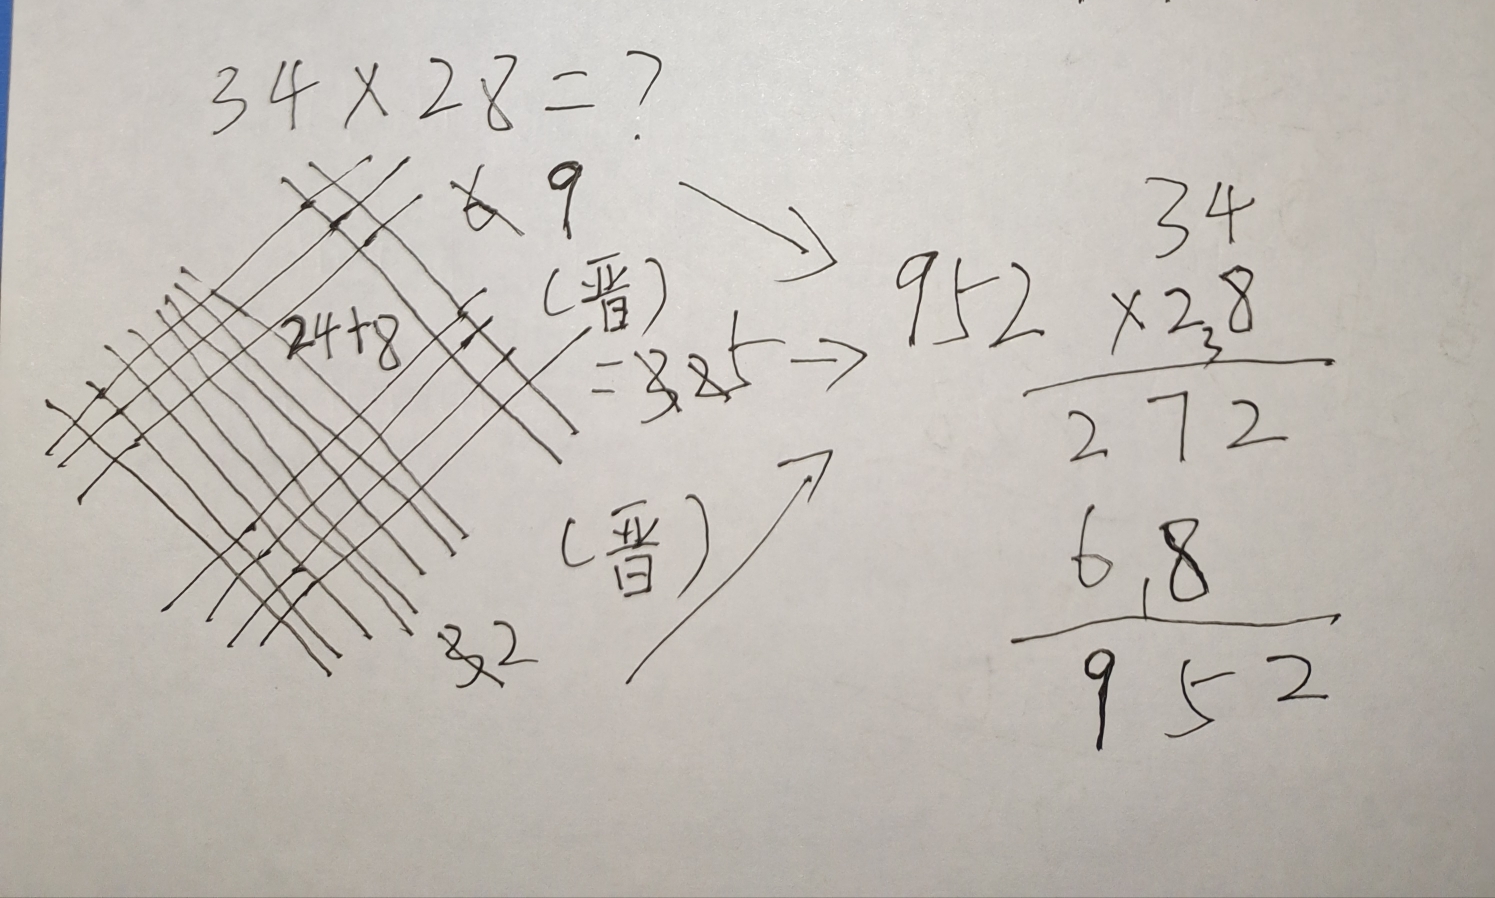 34×28=?
6 9
(晋)
24+8
=3 2 5
952
(晋)
3 2
34
×28
3
272
68
1
952